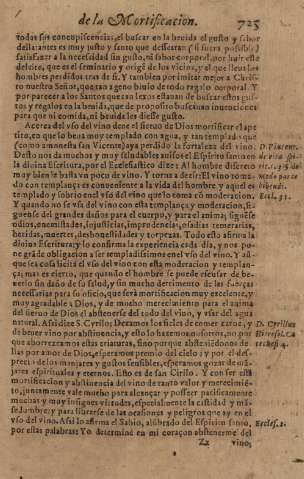 de la Mortificacion. 725
todas sus concupiscencias, el buscar en la beuida el gusto y sabor
della: antes es muy justo y santo que dessearan (si fuera possible)
satisfazer a la necessidad sin gusto, ni sabor corporal, por huir este
deleite, que es el seminario y origē de los vicios, y el que lleua los
hombres perdidos tras de si. Y tambien por imitar mejor a Chris-
to nuestro Señor, que tan ageno biuio de todo regalo corporal. Y
por parecer a los Santos que tan lexos estauan de buscar estos gus-
tos y regalos en la beuida, que de proposito buscauan inuenciones
para que ni comida, ni beuida les diesse gusto.
Acerca del vso del vino deue el sieruo de Dios mortificar el ape
tito, en que lo beua muy templado con agua, y tan templado que
(como amonesta san Vicente) aya perdido la fortaleza del vino.
Desto nos da muchos y muy saludables auisos el Espiritu santo en
la diuina Escritura, por el Ecclesiastico dize: Al hombre discreto
muy bien le basta vn poco de vino. Y torna a dezir: El vino toma
do con templança es conueniente a la vida del hombre y aquel es
templado y sobrio en el vso del vino que lo toma cō moderacion.
Y quando no se vsa del vino con esta templança y moderacion, si-
guense del grandes daños para el cuerpo, y para el anima; siguēse
odios, enemistades, injusticias, imprudencias, osadias temerarias,
heridas, muertes, deshonestidades y torpezas. Todo esto afirma la
diuina Escritura; y lo confirma la experiencia cada dia, y nos po-
ne grāde obligacion a ser templadissimos en el vso del vino. Y aū-
que sea cosa licita el vso del vino con esta moderacion y templan-
ça; mas es cierto, que quando el hombre se puede escusar de be-
uerlo sin daño de su salud, y sin mucho detrimento de las fuerças
necessarias para su oficio, que serà mortificacion muy excelente, y
muy agradable a Dios, y de mucho merecimiento para el anima
del sieruo de Dios el abstenerse del todo del vino, y vsar del agua
natural. Assi dize S. Cyrilo; Dexamos los fieles de comer carne, y
de beuer vino por abstinencia, y esto lo hazemos assi, no por
que aborrezcamos estas criaturas, sino porque abstiniēdonos de
llas por amor de Dios, esperamos premio del cielo; y por el des-
precio de los manjares y gustos sensibles, esperamos gozar de mā-
jares espirituales y eternos. Esto es de san Cirilo. Y con ser esta
mortificacion y abstinencia del vino de tanto valor y merecimiē-
to, juntamente vale mucho para alcançar y posseer pacificamente
muchas y muy insignes virtudes, especialmente la castidad y mā-
sedumbre; y para librarse de las ocasiones y peligros que ay en el
vso del vino. Assi lo afirma el Sabio, alūbrado del Espiritu santo,
por estas palabras: Yo determinè en mi coraçon abstenerme del
Zz vino,
D. Vincent.
de vita spi-
bibendi.
Eccl. 31.
D. Cyrillus
Eccles. 2.